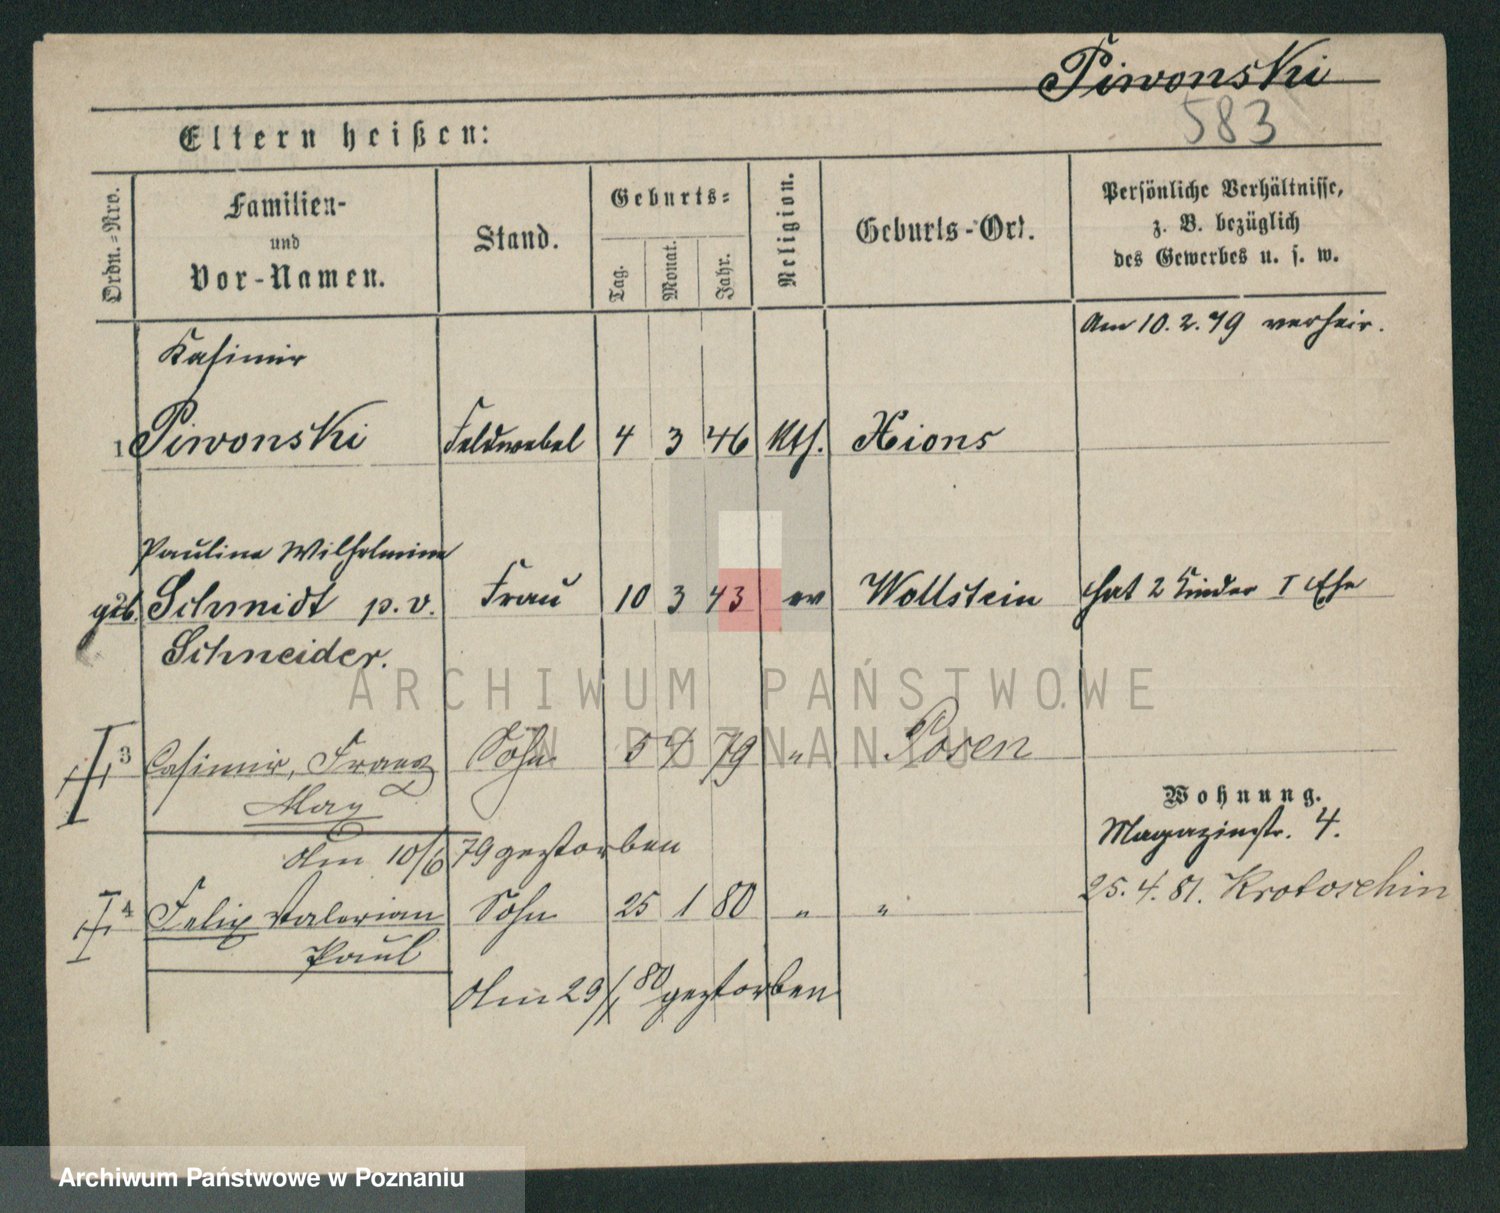 Piwonski
583
Eltern heißen:
Ordn.-Nro.
Familien-
und
Vor-Namen.
Stand.
Geburts-
Tag.
Monat.
Jahr.
Religion.
Geburts-Ort.
Persönliche Verhältnisse,
z. B. bezüglich
des Gewerbes u. s. w.
Am 10.2.79 verheir.
Kasimir
1 Piwonski Feldwebel 4 3 46 kth. Xions
Pauline Wilhelmine
geb. Schmidt p. v. Frau 10 3 43 ev Wollstein hat 2 Kinder I Ehe
Schneider.
3 Casimir, Franz Sohn 5 4 79 " Posen
Max
Am 10/6 79 gestorben
Wohnung.
Magazinstr. 4.
25.4.81. Krotoschin
4 Felix Valerian Sohn 25 1 80 " "
Paul
Am 29/1 80 gestorben
ARCHIWUM PAŃSTWOWE
W POZNANIU
Archiwum Państwowe w Poznaniu